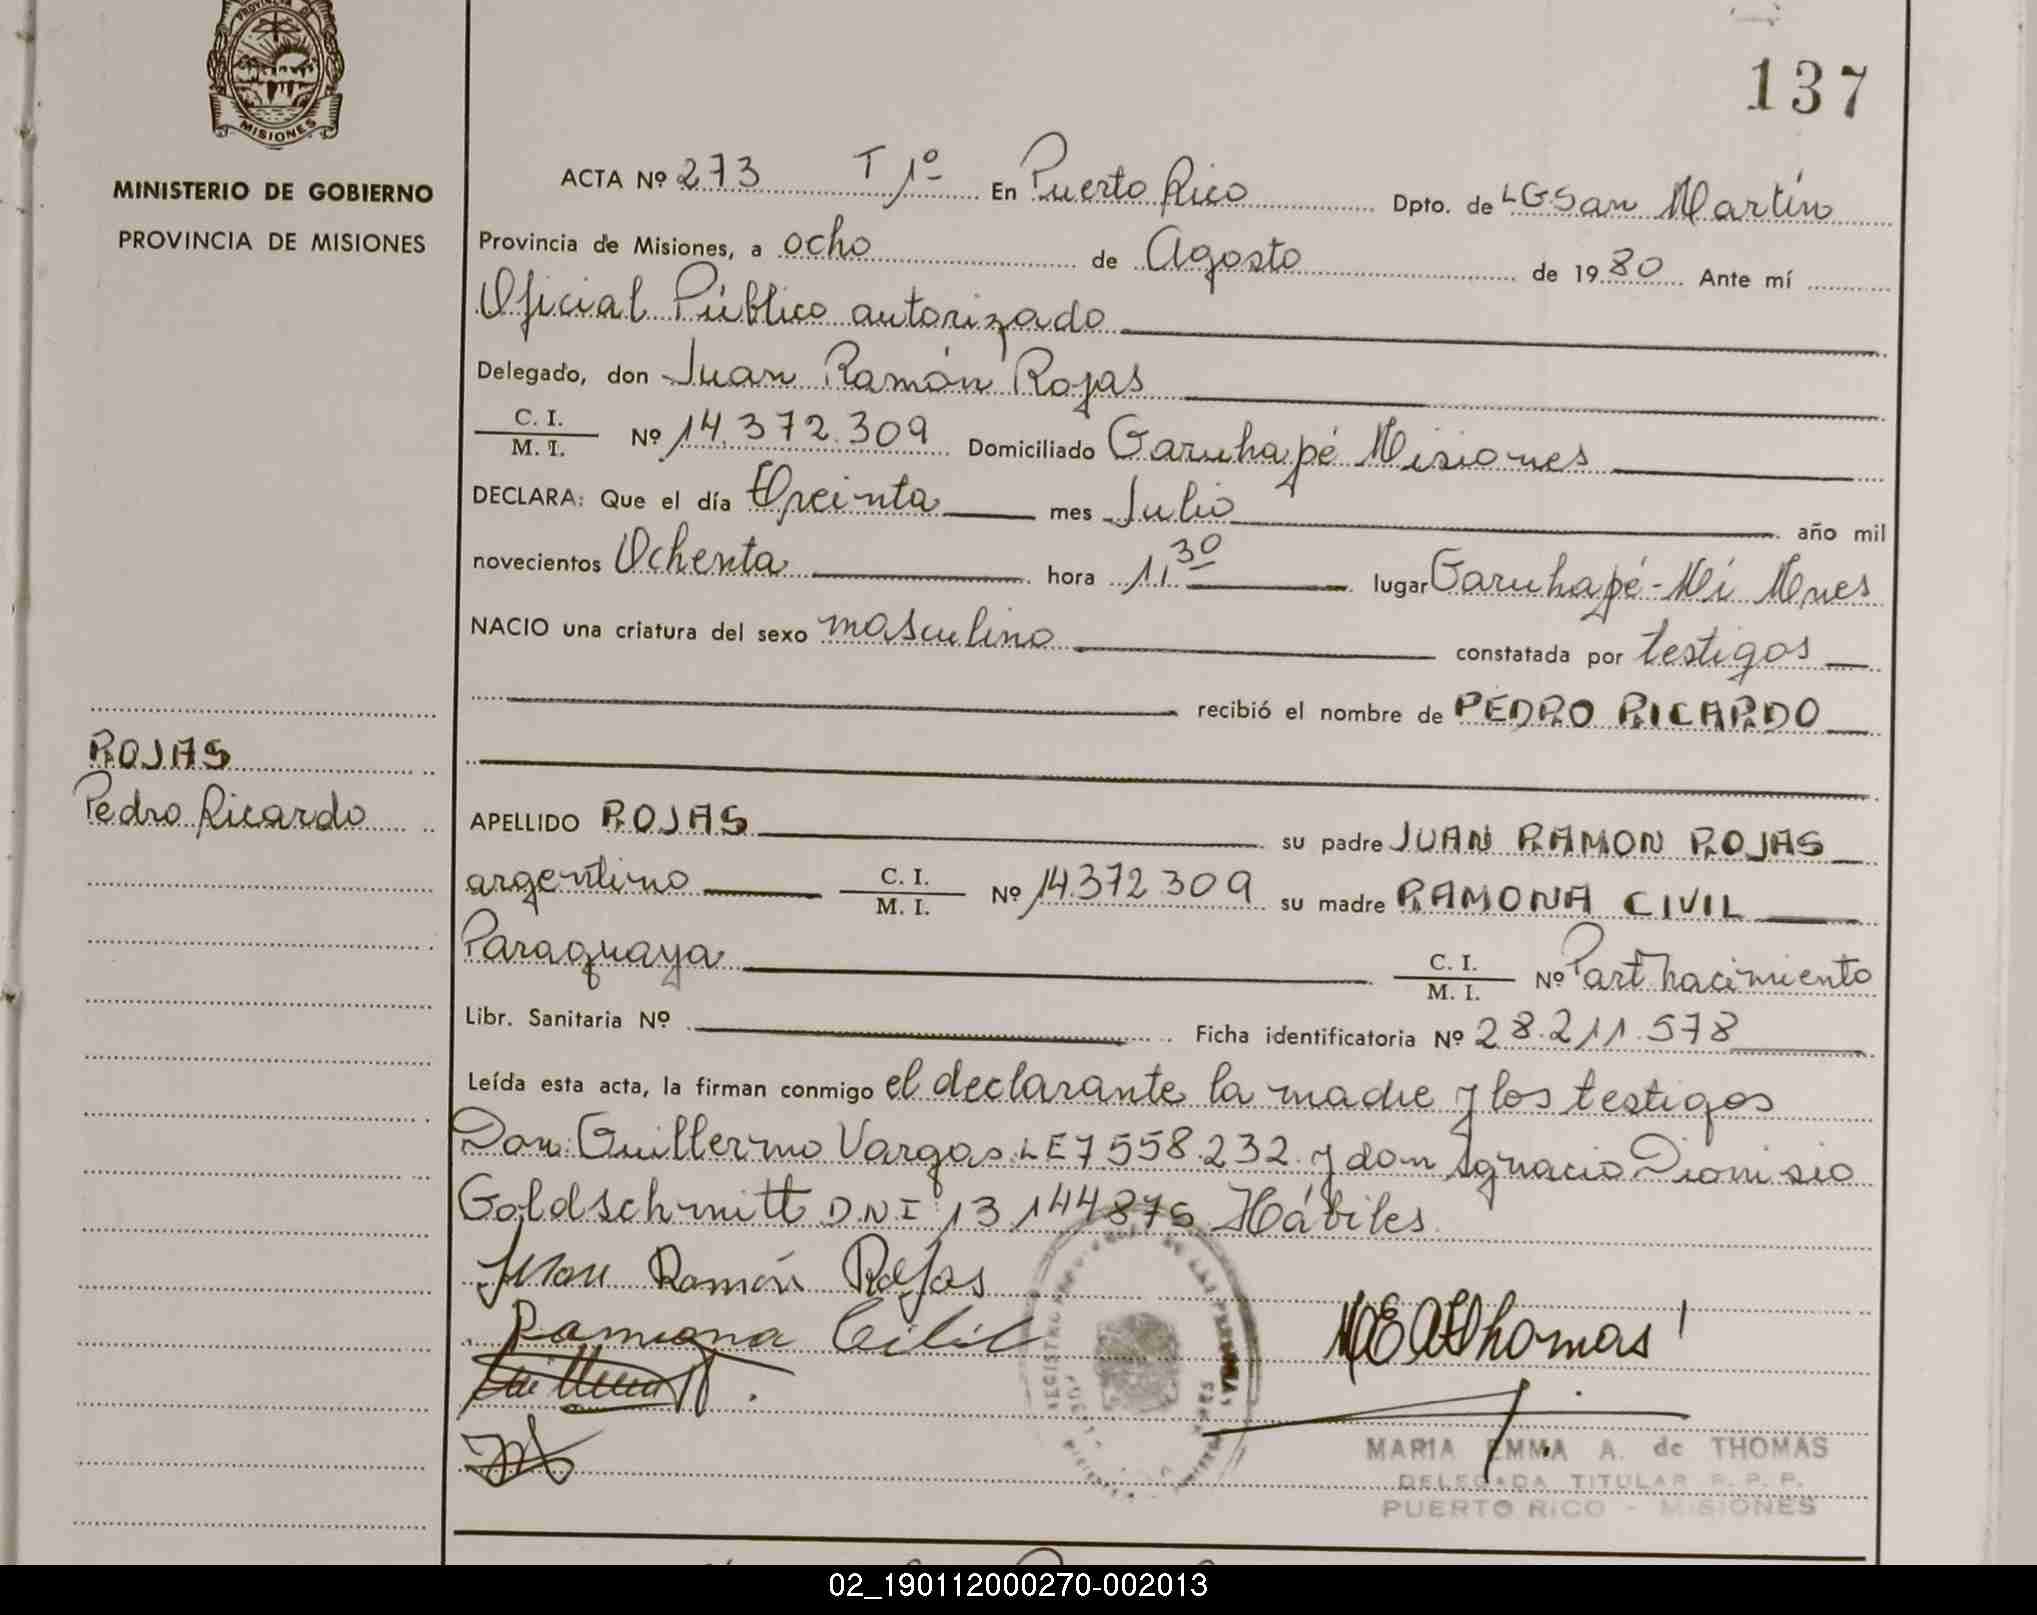 137
MISIONES
MINISTERIO DE GOBIERNO
PROVINCIA DE MISIONES
ACTA Nº 273 T 1º En Puerto Rico Dpto. de LGSan Martín
Provincia de Misiones, a ocho de Agosto de 1980 Ante mí
Oficial Público autorizado
Delegado, don Juan Ramón Rojas
C. I.
M. I. Nº 14.372.309 Domiciliado Garuhapé Misiones
DECLARA: Que el día Treinta mes Julio año mil
novecientos Ochenta hora 11.30 lugar Garuhapé-Mi
NACIO una criatura del sexo masculino constatada por testigos
recibió el nombre de PEDRO RICARDO
ROJAS
Pedro Ricardo
APELLIDO ROJAS su padre JUAN RAMON ROJAS
argentino C. I.
M. I. Nº 14.372.309 su madre RAMONA CIVIL
Paraguaya C. I.
M. I. Nº Part nacimiento
Libr. Sanitaria Nº Ficha identificatoria Nº 28.211.578
Leída esta acta, la firman conmigo el declarante la madre y los testigos
Don: Guillermo Vargas LE 7.558.232 y don Ignacio Dionisio
Goldschmitt D.N.I 13 144876 Hábiles
Juan Ramón Rojas
Ramona Civil
MEAThomas
MARIA EMMA A. de THOMAS
DELEGADA TITULAR R. P. P.
PUERTO RICO - MISIONES
02_190112000270-002013